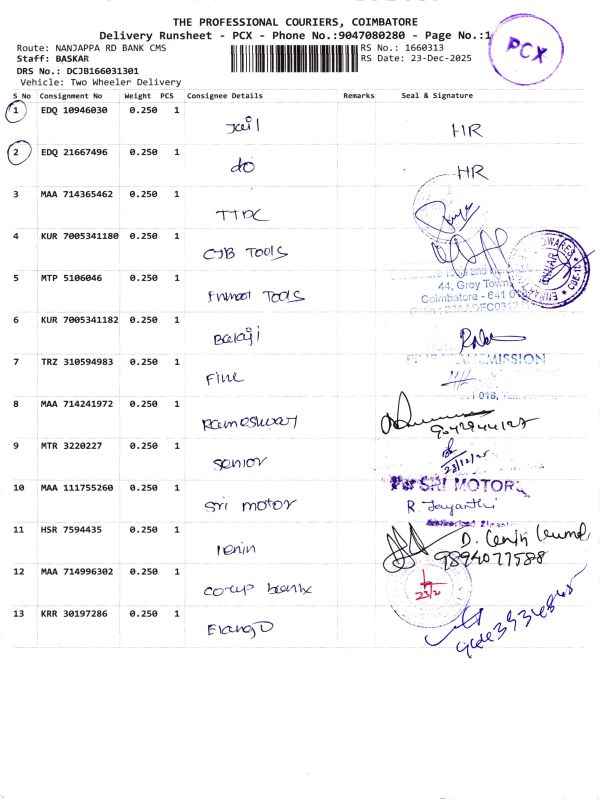 THE PROFESSIONAL COURIERS, COIMBATORE
Delivery Runsheet - PCX - Phone No.:9047080280 - Page No.:1
PCX
Route: NANJAPPA RD BANK CMS
RS No.: 1660313
Staff: BASKAR
RS Date: 23-Dec-2025
DRS No.: DCJB166031301
Vehicle: Two Wheeler Delivery
S No Consignment No Weight PCS Consignee Details Remarks Seal & Signature
1 EDQ 10946030 0.250 1 Jail HR
2 EDQ 21667496 0.250 1 do HR
3 MAA 714365462 0.250 1 TTDC
4 KUR 7005341180 0.250 1 CJB TOOLS
44, Grey Town
Coimbatore - 641 0
5 MTP 5106046 0.250 1 TOOLS
6 KUR 7005341182 0.250 1 Balaji
7 TRZ 310594983 0.250 1 Fine
8 MAA 714241972 0.250 1 Rameswary
9 MTR 3220227 0.250 1 senior
23/12/25
10 MAA 111755260 0.250 1 sri motor
For SRI MOTOR
R. Jayanthi
11 HSR 7594435 0.250 1 lenin
9894077588
12 MAA 714996302 0.250 1 co-up bank
13 KRR 30197286 0.250 1 ElangO